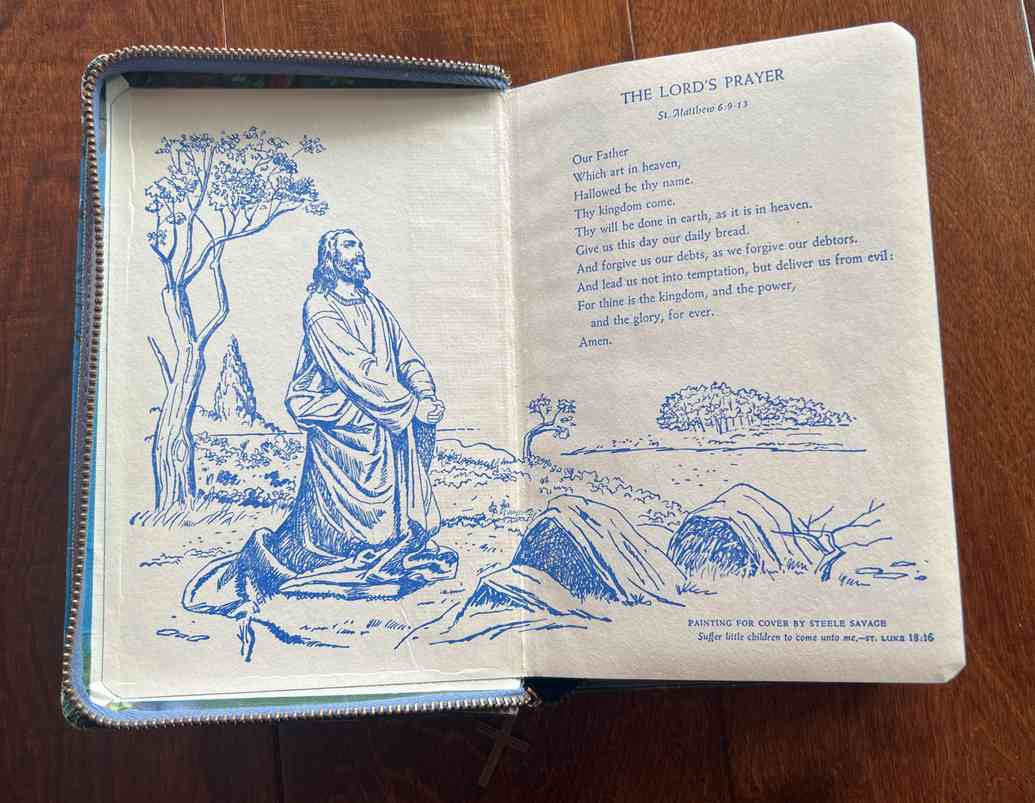 THE LORD'S PRAYER
St. Matthew 6:9-13
Our Father
Which art in heaven,
Hallowed be thy name.
Thy kingdom come.
Thy will be done in earth, as it is in heaven.
Give us this day our daily bread.
And forgive us our debts, as we forgive our debtors.
And lead us not into temptation, but deliver us from evil:
For thine is the kingdom, and the power,
and the glory, for ever.
Amen.
PAINTING FOR COVER BY STEELE SAVAGE
Suffer little children to come unto me,—ST. LUKE 18:16